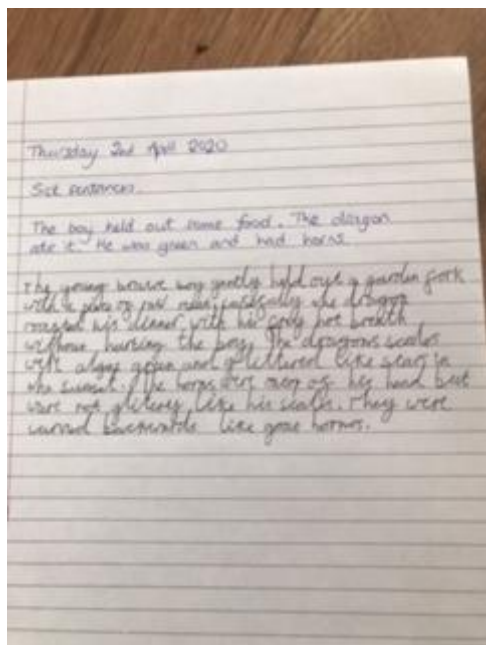 Thursday 2nd April 2020
Sick sentences.
The boy held out some food. The dragon
ate it. He was green and had horns.
The young brave boy gently held out a garden fork
with a piece of raw meat, carefully the dragon
roasted his dinner with his fiery hot breath
without hurting the boy. The dragons scales
were algae green and glittered like stars in
the sunset. The horns were on his head but
were not glittery like his scales. They were
curved backwards like goat hornes.